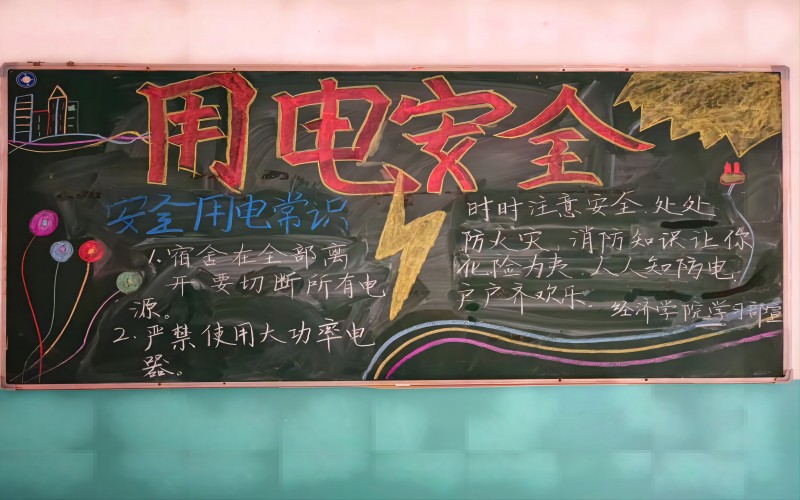 用电安全
安全用电常识
1.宿舍在全部离
开要切断所有电
源。
2.严禁使用大功率电
器。
时时注意安全.处处
防火灾,消防知识让你
化险为夷.人人知防电,
户户齐欢乐.
经济学院学习部宣